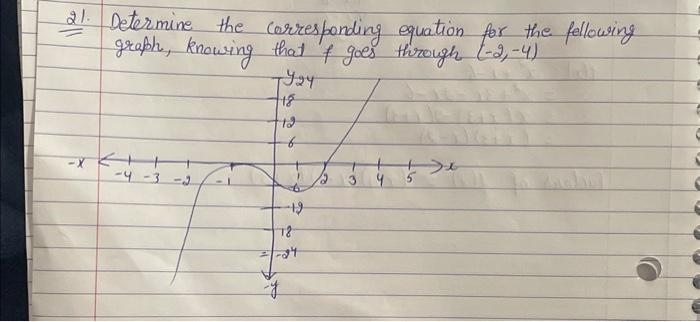 21. Determine the corresponding equation for the following
graph, knowing that f goes through (-2,-4)
y 24
18
12
6
-x -4 -3 -2 -1 1 2 3 4 5 x
6
-12
18
-24
-y